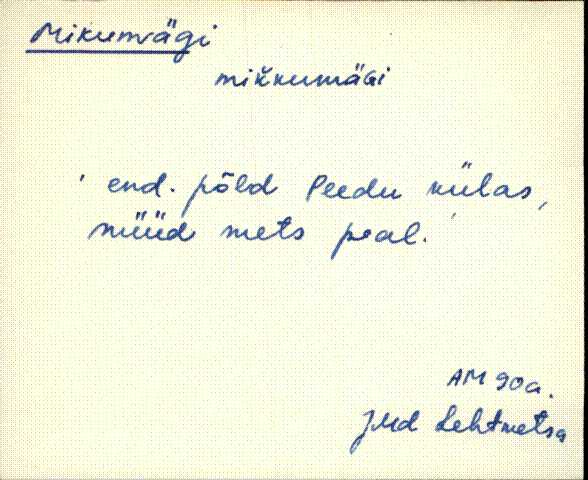 Mikumägi
mikkumäGi
' end. põld Peedu külas,
nüüd mets peal. '
AM 90a.
JMd Lehtmetsa